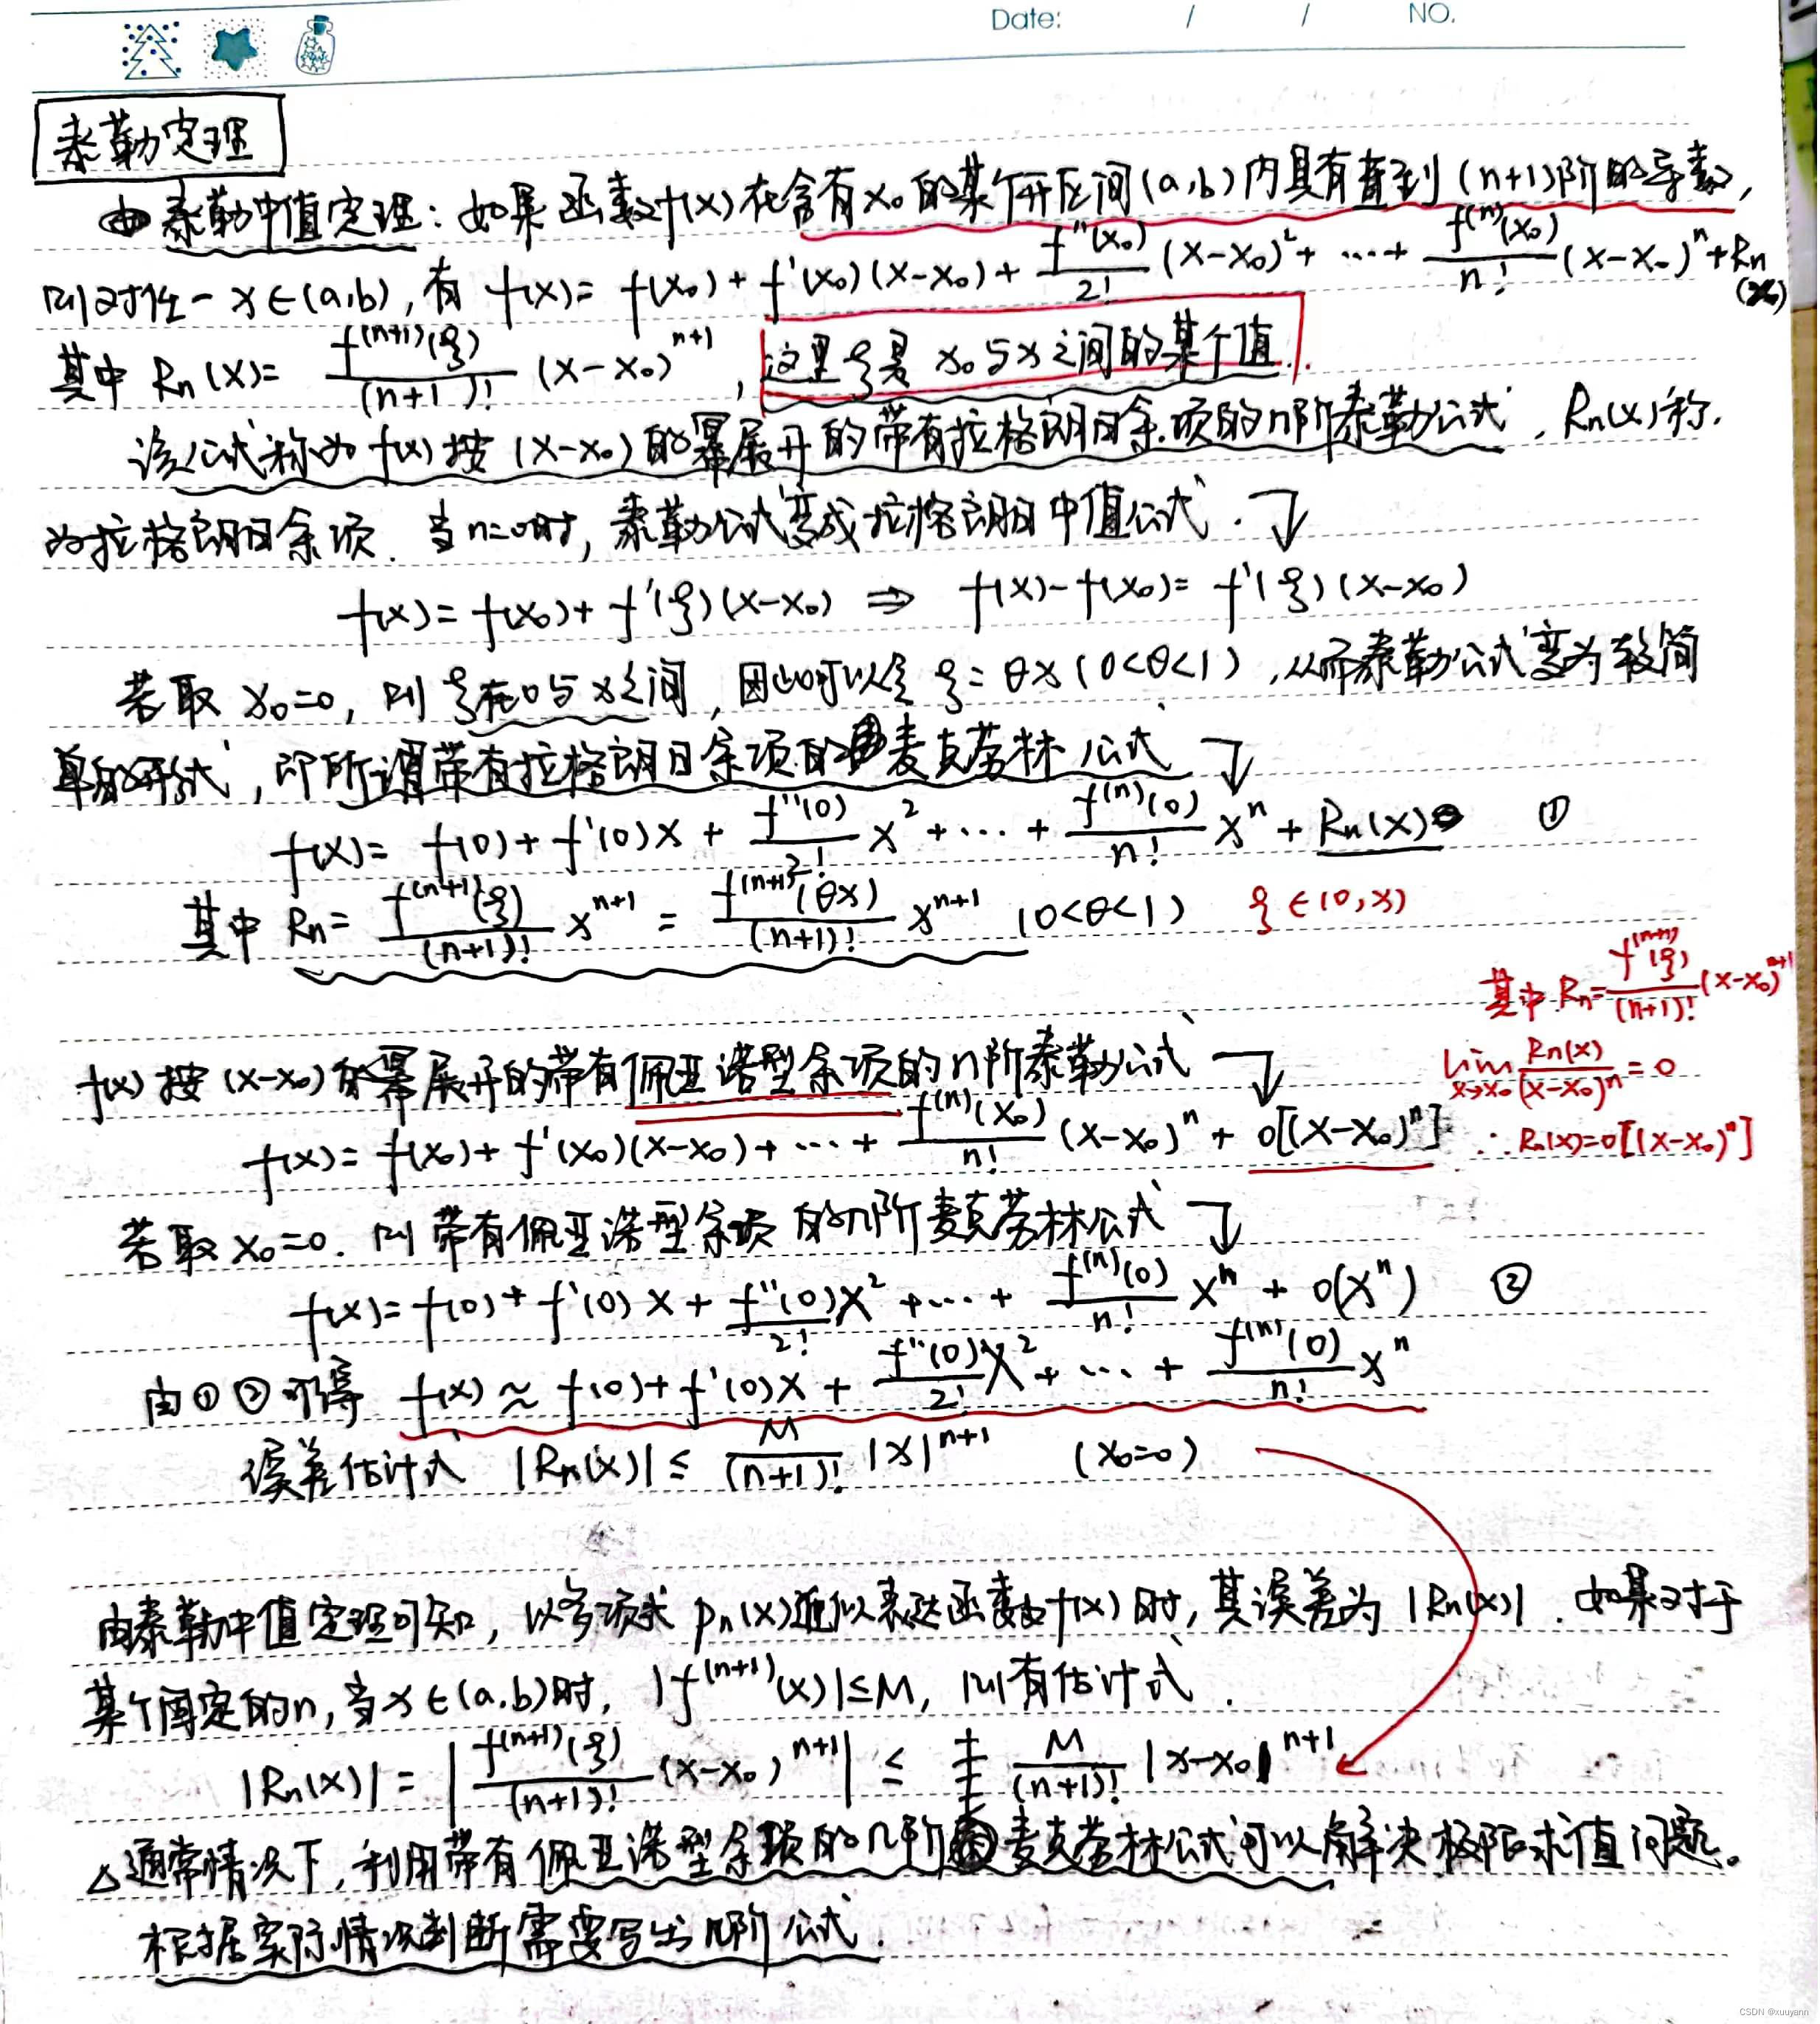 Date: / / NO.
泰勒定理
泰勒中值定理：如果函数f(x)在含有x₀的某个开区间(a,b)内具有直到(n+1)阶的导数,
则对任一x∈(a,b), 有 f(x)= f(x₀)+f'(x₀)(x-x₀)+ f''(x₀)/2! (x-x₀)²+ ··· + f⁽ⁿ⁾(x₀)/n! (x-x₀)ⁿ+Rn(x)
其中 Rn(x)= f⁽ⁿ⁺¹⁾(ξ)/(n+1)! (x-x₀)ⁿ⁺¹ , 这里ξ是 x₀与x之间的某个值.
该公式称为 f(x)按(x-x₀)的幂展开的带有拉格朗日余项的n阶泰勒公式, Rn(x)称.
为拉格朗日余项. 当n=0时, 泰勒公式变成拉格朗日中值公式.
f(x)= f(x₀)+ f'(ξ)(x-x₀) ⇒ f(x)-f(x₀)= f'(ξ)(x-x₀)
若取 x₀=0, 则 ξ在0与x之间, 因此可以令 ξ= θx (0<θ<1), 从而泰勒公式变为较简
单的形式, 即所谓带有拉格朗日余项的麦克劳林公式
f(x)= f(0)+ f'(0)x + f''(0)/2! x² +···+ f⁽ⁿ⁾(0)/n! xⁿ + Rn(x) ①
其中 Rn= f⁽ⁿ⁺¹⁾(ξ)/(n+1)! xⁿ⁺¹ = f⁽ⁿ⁺¹⁾(θx)/(n+1)! xⁿ⁺¹ (0<θ<1) ξ∈(0,x)
其中 Rn= f⁽ⁿ⁺¹⁾(ξ)/(n+1)! (x-x₀)ⁿ⁺¹
lim x→x₀ Rn(x)/(x-x₀)ⁿ = 0
∴ Rn(x)=o[(x-x₀)ⁿ]
f(x)按(x-x₀)的幂展开的带有佩亚诺型余项的n阶泰勒公式
f(x)= f(x₀)+ f'(x₀)(x-x₀)+ ··· + f⁽ⁿ⁾(x₀)/n! (x-x₀)ⁿ + o[(x-x₀)ⁿ]
若取 x₀=0. 则带有佩亚诺型余项的n阶麦克劳林公式
f(x)= f(0)+ f'(0)x + f''(0)/2! x² +···+ f⁽ⁿ⁾(0)/n! xⁿ + o(xⁿ) ②
由①②可得 f(x)≈ f(0)+ f'(0)x + f''(0)/2! x² + ··· + f⁽ⁿ⁾(0)/n! xⁿ
误差估计式 |Rn(x)| ≤ M/(n+1)! |x|ⁿ⁺¹ (x₀=0)
由泰勒中值定理可知, 以多项式 pn(x)近似表达函数f(x)时, 其误差为 |Rn(x)|. 如果对于
某个固定的n, 当x∈(a,b)时, |f⁽ⁿ⁺¹⁾(x)|≤M, 则有估计式.
|Rn(x)| = | f⁽ⁿ⁺¹⁾(ξ)/(n+1)! (x-x₀)ⁿ⁺¹ | ≤ M/(n+1)! |x-x₀|ⁿ⁺¹
△通常情况下, 利用带有佩亚诺型余项的n阶麦克劳林公式可以解决极限求值问题。
根据实际情况判断需要写出几阶公式.
CSDN @xuuyann